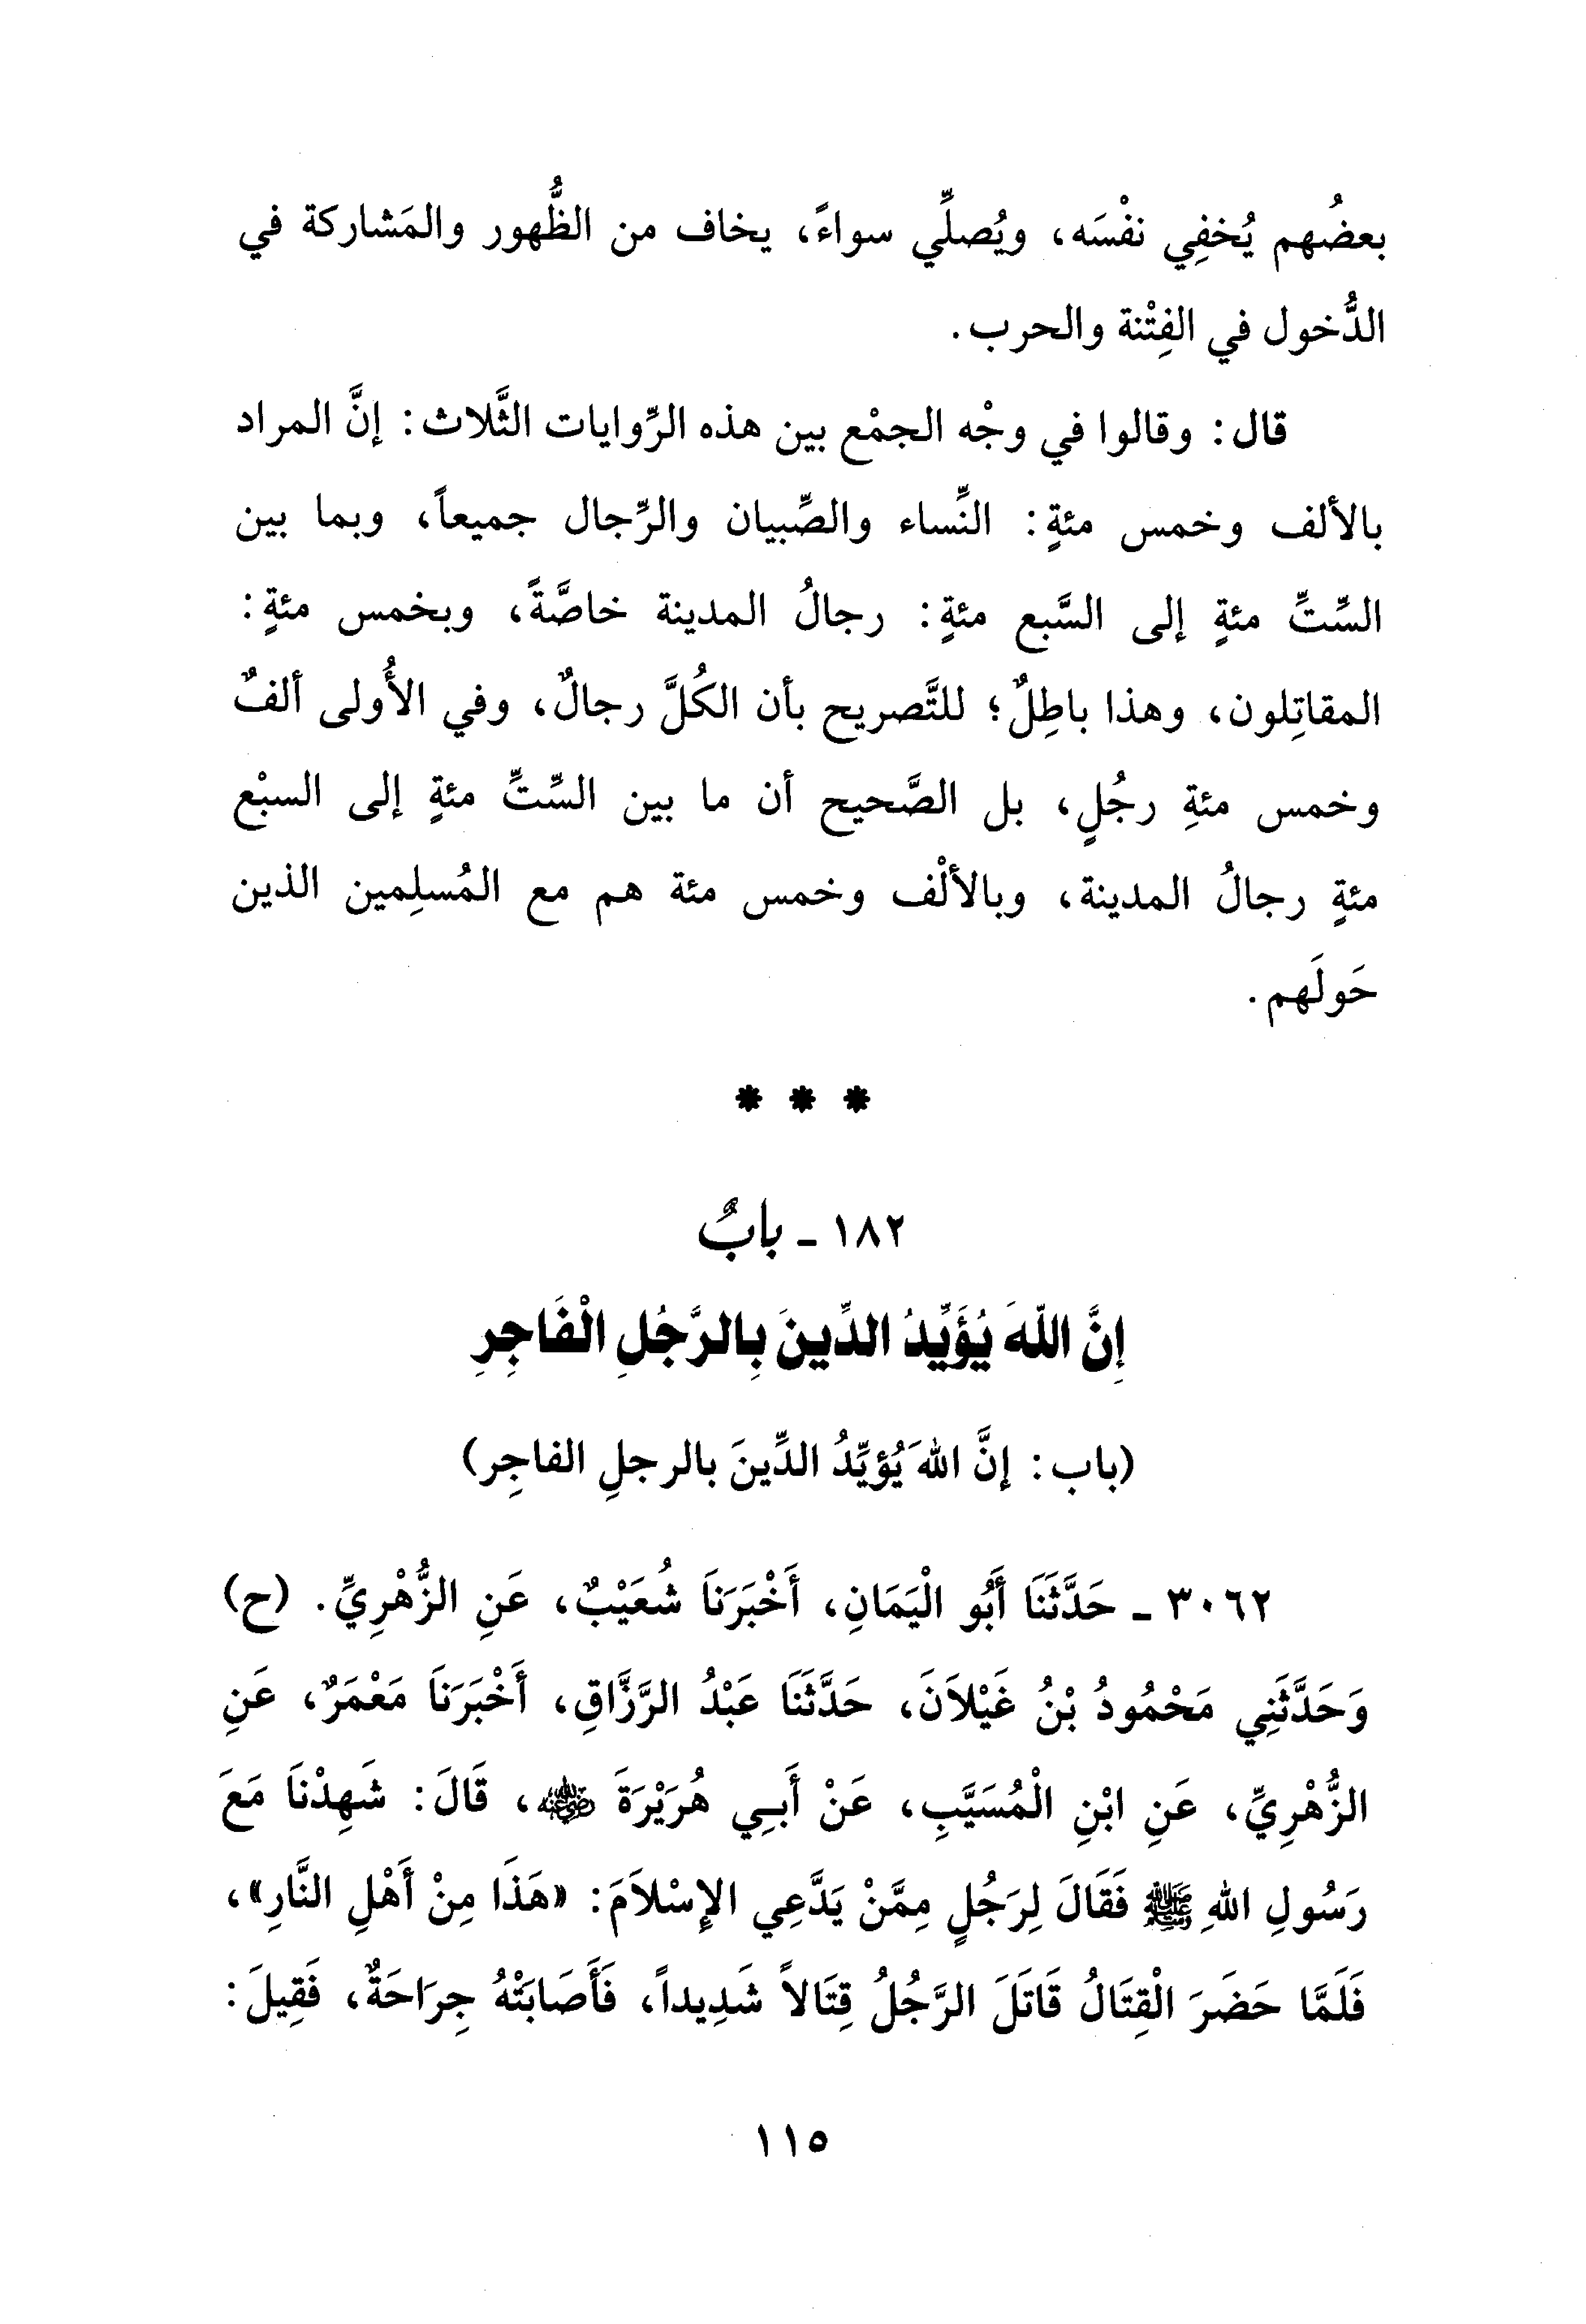 بعضُهم يُخفِي نفْسَه، ويُصلِّي سواءً، يخاف من الظُّهور والمَشاركة في
الدُّخول في الفِتْنة والحرب.
قال: وقالوا في وجْه الجمْع بين هذه الرِّوايات الثَّلاث: إنَّ المراد
بالألف وخمس مئةٍ: النِّساء والصِّبيان والرِّجال جميعاً، وبما بين
السِّتِّ مئةٍ إلى السَّبع مئةٍ: رجالُ المدينة خاصَّةً، وبخمس مئةٍ:
المقاتِلون، وهذا باطِلٌ؛ للتَّصريح بأن الكُلَّ رجالٌ، وفي الأُولى ألفٌ
وخمس مئةِ رجُلٍ، بل الصَّحيح أن ما بين السِّتِّ مئةٍ إلى السبْع
مئةٍ رجالُ المدينة، وبالألْف وخمس مئة هم مع المُسلِمين الذين
حَولَهم.
* * *
١٨٢ - بابٌ
إِنَّ اللهَ يُؤَيِّدُ الدِّينَ بِالرَّجُلِ الْفَاجِرِ
(باب: إنَّ اللهَ يُؤيِّدُ الدِّينَ بالرجلِ الفاجِر)
٣٠٦٢ - حَدَّثَنَا أَبُو الْيَمَانِ، أَخْبَرَنَا شُعَيْبٌ، عَنِ الزُّهْرِيِّ. (ح)
وَحَدَّثَنِي مَحْمُودُ بْنُ غَيْلاَنَ، حَدَّثَنَا عَبْدُ الرَّزَّاقِ، أَخْبَرَنَا مَعْمَرٌ، عَنِ
الزُّهْرِيِّ، عَنِ ابْنِ الْمُسَيَّبِ، عَنْ أَبِي هُرَيْرَةَ رضي الله عنه، قَالَ: شَهِدْنَا مَعَ
رَسُولِ اللهِ ﷺ فَقَالَ لِرَجُلٍ مِمَّنْ يَدَّعِي الإِسْلاَمَ: «هَذَا مِنْ أَهْلِ النَّارِ»،
فَلَمَّا حَضَرَ الْقِتَالُ قَاتَلَ الرَّجُلُ قِتَالاً شَدِيداً، فَأَصَابَتْهُ جِرَاحَةٌ، فَقِيلَ:
١١٥